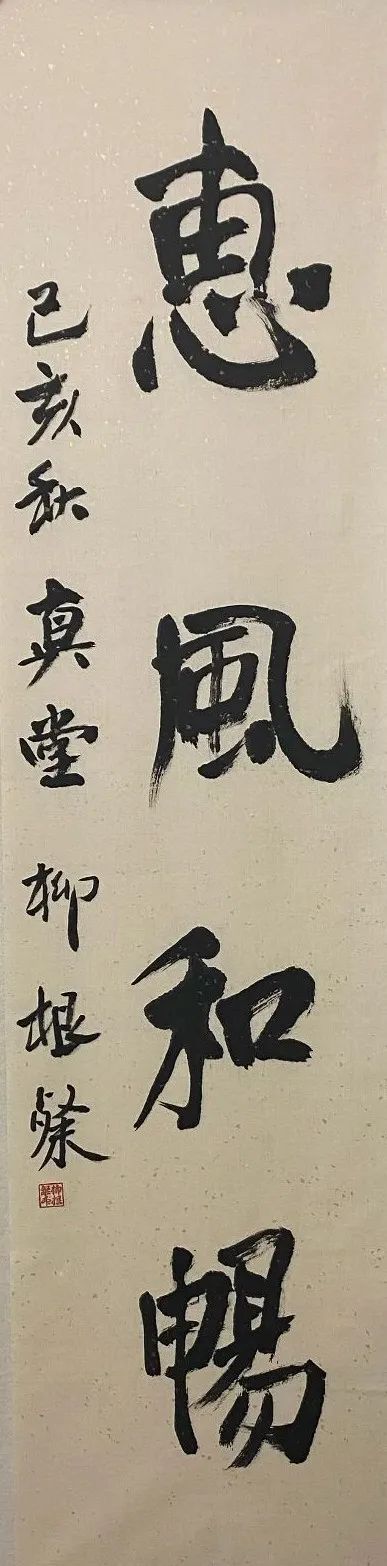 惠風和暢
己亥秋 真堂 柳根